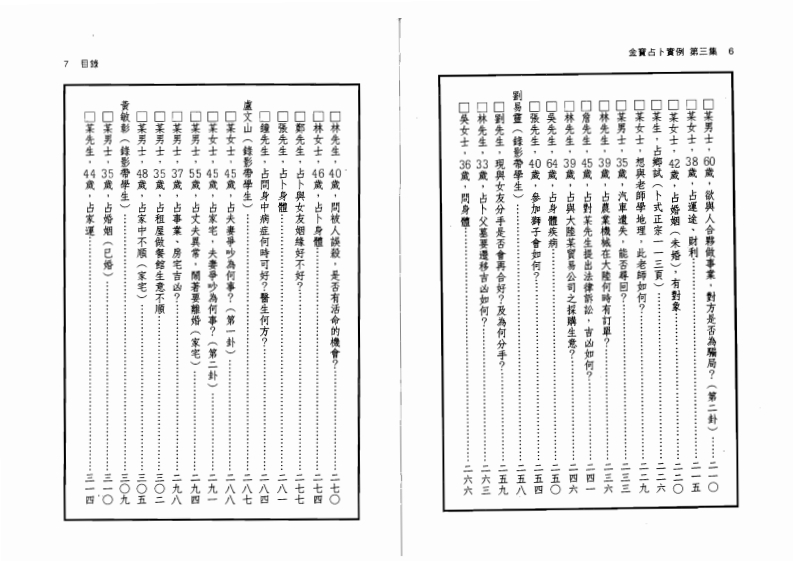 金寶占卜實例 第三集 6
□某男士，60歲，欲與人合夥做事業，對方是否為騙局？（第二卦）……二一〇
□某女士，38歲，占運途、財利……二一五
□某女士，42歲，占婚姻（未婚），有對象……二二〇
□某生，占鄉試（卜式正宗一一三頁）……二二六
□某女士，想與老師學地理，此老師如何？……二二九
□某男士，35歲，汽車遺失，能否尋回？……二三三
□林先生，39歲，占農業機械在大陸何時有訂單？……二三六
□詹先生，45歲，占對某先生提出法律訴訟，吉凶如何？……二四一
□林先生，39歲，占與大陸某貿易公司之採購生意？……二四六
□吳先生，64歲，占身體疾病……二五〇
□張先生，40歲，參加獅子會如何？……二五四
劉易靈（錄影帶學生）……二五八
□劉先生，現與女友分手是否會再合好？及為何分手？……二五九
□林先生，33歲，占卜父墓要遷移吉凶如何？……二六三
□吳女士，36歲，問身體……二六六
7 目錄
□林先生，40歲，問被人誤殺，是否有活命的機會？……二七〇
□林女士，46歲，占卜身體……二七四
□鄭先生，占卜與女友姻緣好不好？……二七七
□張先生，占卜身體……二八一
□鐘先生，占問身中病症何時可好？醫生何方？……二八四
盧文山（錄影帶學生）……二八七
□某女士，45歲，占夫妻爭吵為何事？（第一卦）……二八八
□某女士，45歲，占家宅，夫妻爭吵為何事？（第二卦）……二九一
□某男士，55歲，占丈夫異常，鬧著要離婚（家宅）……二九四
□某男士，37歲，占事業、房宅吉凶？……二九八
□某男士，35歲，占租屋做餐館生意不順……三〇二
□某男士，48歲，占家中不順（家宅）……三〇五
黃敏彰（錄影帶學生）……三〇九
□某男士，35歲，占婚姻（已婚）……三一〇
□某先生，44歲，占家運……三一四